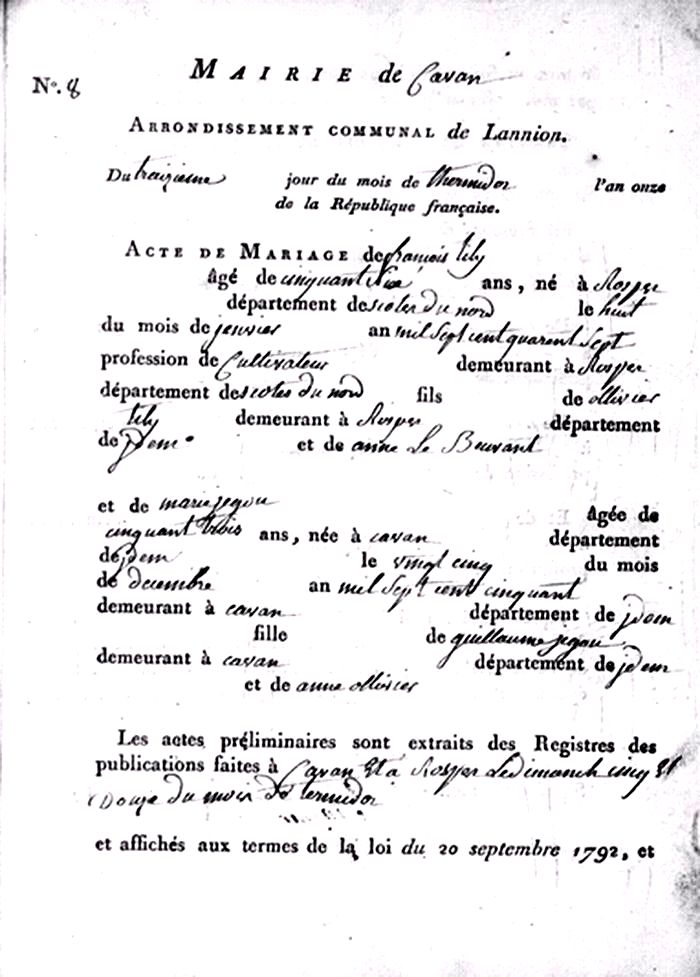 MAIRIE de Cavan
N°. 8
ARRONDISSEMENT COMMUNAL de Lannion.
Du treizieme jour du mois de thermidor l'an onze
de la République française.
ACTE DE MARIAGE de françois lily
âgé de cinquant Six ans, né à Rosper
département des cotes du nord le huit
du mois de jenvier an mil Sept cent quarent Sept
profession de Cultivateur demeurant à Rosper
département des cotes du nord fils de ollivier
lily demeurant à Rosper département
de jdem. et de anne Le Bouvant
et de marie jegou âgée de
cinquant trois ans, née à cavan département
de jdem le vingt cinq du mois
de decembre an mil Sept cent cinquant
demeurant à cavan département de jdem
fille de guillaume jegou
demeurant à cavan département de jdem
et de anne ollivier
Les actes préliminaires sont extraits des Registres des
publications faites à Cavan Et a Rosper Le dimanch cinq Et
Douze du mois de termidor
et affichés aux termes de la loi du 20 septembre 1792, et